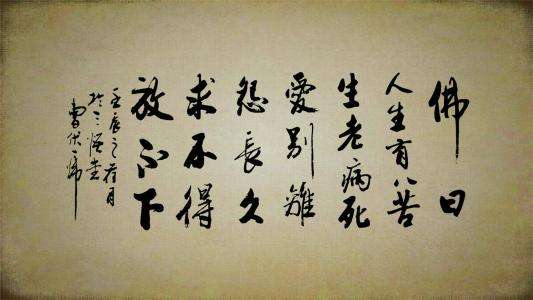 佛曰
人生有八苦
生老病死
愛别離
怨長久
求不得
放不下
壬辰之荷月
於三悟堂